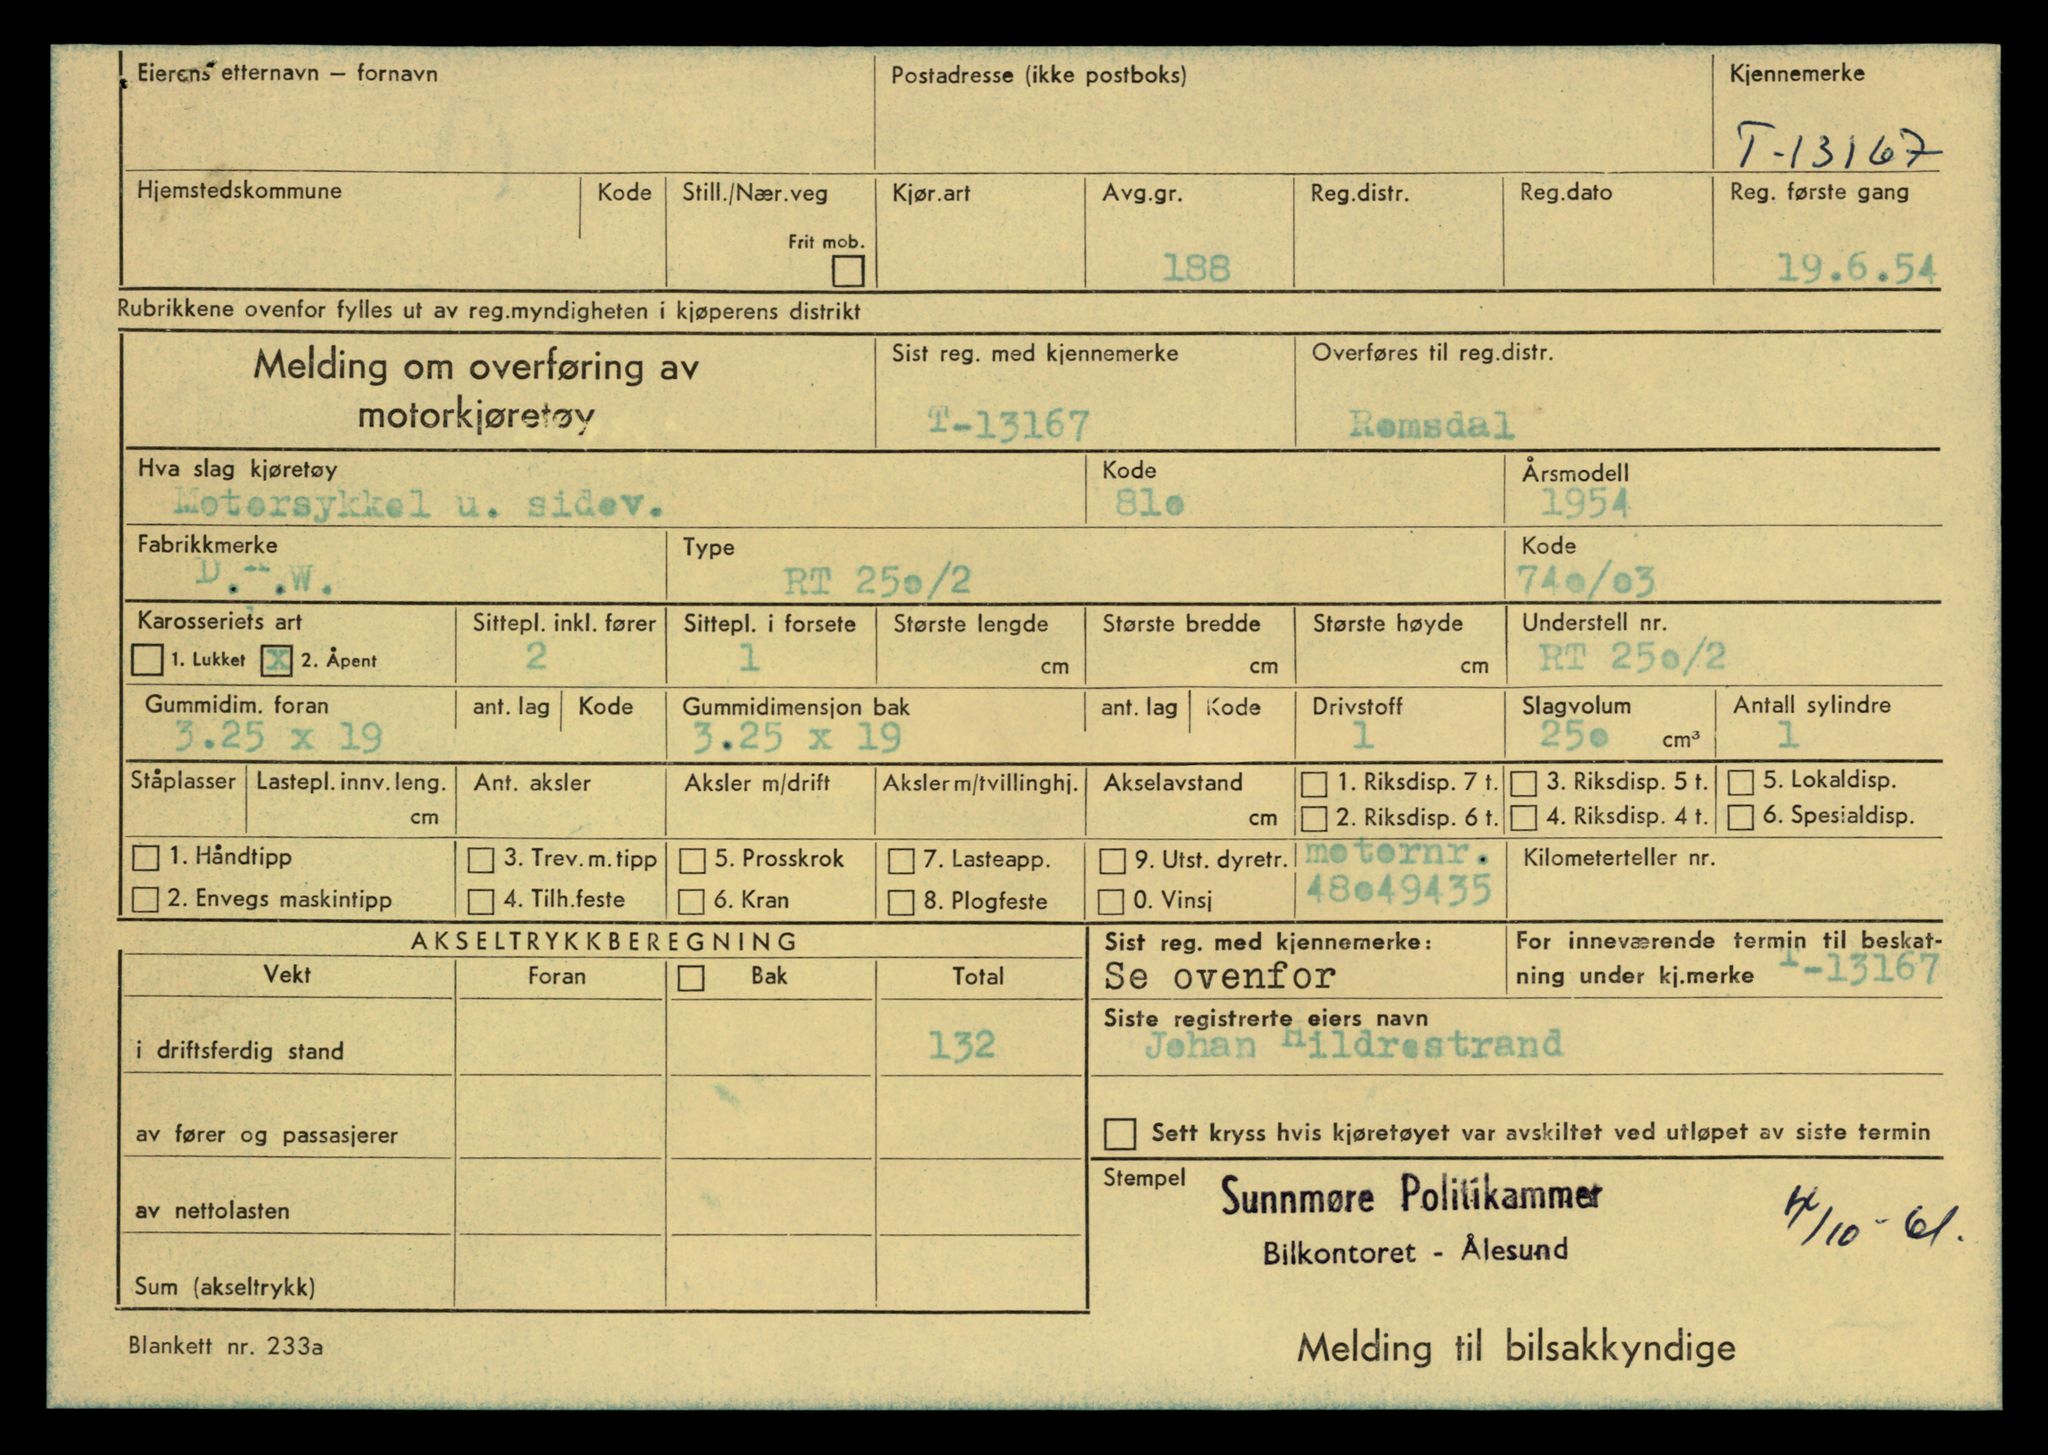 Eierens etternavn – fornavn
Postadresse (ikke postboks)
Kjennemerke
T-13167
Hjemstedskommune
Kode
Still./Nær.veg
Frit mob.
Kjør.art
Avg.gr.
188
Reg.distr.
Reg.dato
Reg. første gang
19.6.54
Rubrikkene ovenfor fylles ut av reg.myndigheten i kjøperens distrikt
Melding om overføring av
motorkjøretøy
Sist reg. med kjennemerke
T-13167
Overføres til reg.distr.
Romsdal
Hva slag kjøretøy
Motorsykkel u. sidev.
Kode
81o
Årsmodell
1954
Fabrikkmerke
D.K.W.
Type
RT 25o/2
Kode
74o/o3
Karosseriets art
1. Lukket x 2. Åpent
Sittepl. inkl. fører
2
Sittepl. i forsete
1
Største lengde
cm
Største bredde
cm
Største høyde
cm
Understell nr.
RT 25o/2
Gummidim. foran
3.25 x 19
ant. lag
Kode
Gummidimensjon bak
3.25 x 19
ant. lag
Kode
Drivstoff
1
Slagvolum
25o cm³
Antall sylindre
1
Ståplasser
Lastepl. innv. leng.
cm
Ant. aksler
Aksler m/drift
Aksler m/tvillinghj.
Akselavstand
cm
1. Riksdisp. 7 t.
2. Riksdisp. 6 t.
3. Riksdisp. 5 t.
4. Riksdisp. 4 t.
5. Lokaldisp.
6. Spesialdisp.
1. Håndtipp
2. Envegs maskintipp
3. Trev. m. tipp
4. Tilh.feste
5. Prosskrok
6. Kran
7. Lasteapp.
8. Plogfeste
9. Utst. dyretr.
0. Vinsj
motornr.
48o49435
Kilometerteller nr.
AKSELTRYKKBEREGNING
Vekt
Foran
Bak
Total
i driftsferdig stand
132
av fører og passasjerer
av nettolasten
Sum (akseltrykk)
Sist reg. med kjennemerke:
Se ovenfor
For inneværende termin til beskat-
ning under kj.merke T-13167
Siste registrerte eiers navn
Johan Hildrestrand
Sett kryss hvis kjøretøyet var avskiltet ved utløpet av siste termin
Stempel
Sunnmøre Politikammer
Bilkontoret - Ålesund
/10-61.
Blankett nr. 233a
Melding til bilsakkyndige